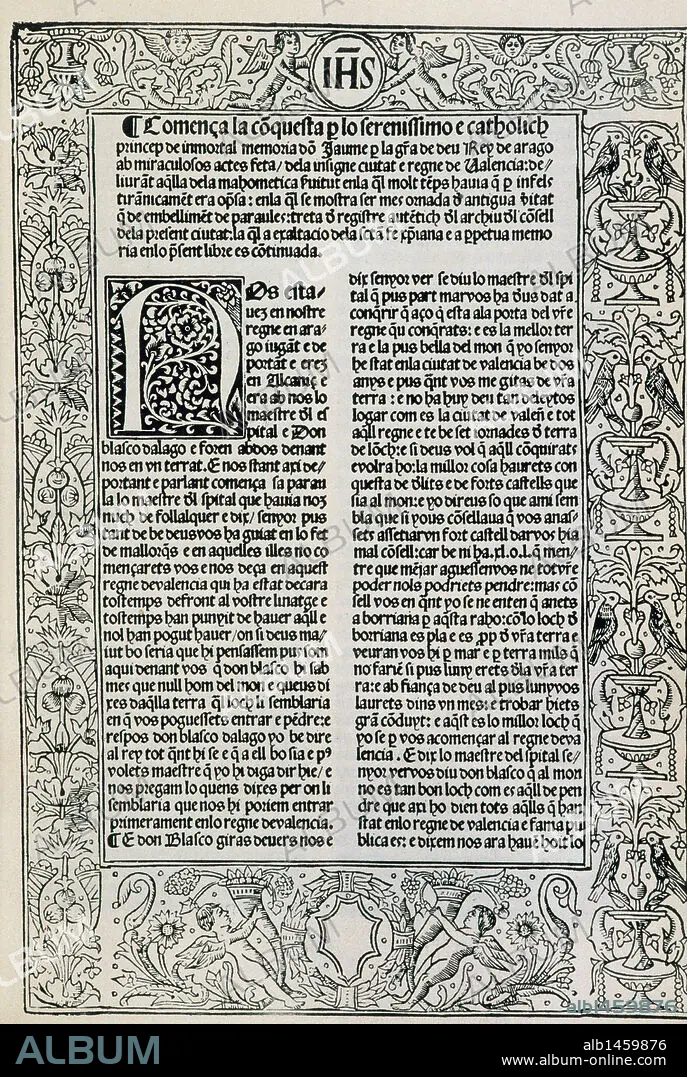 IH̄S
¶ Comença la cõquesta p lo serenissimo e catholich
princep de inmortal memoria dõ Jaume p la gr̃a de deu Rey de arago
ab miraculosos actes feta/ dela insigne ciutat e regne de Ualencia: de/
liurãt aq̃lla dela mahometica s̃uitut enla q̃l molt tẽps hauia q̃ p infels
tirãnicamẽt era op̃sa: enla q̃l se mostra ser mes ornada d̃ antigua ṽitat
q̃ de embellimẽt de paraules: treta d̃ registre autẽtich d̃l archiu d̃l cõsell
dela present ciutat: la q̃l a exaltacio dela sc̃ta fe xp̃iana e a p̱petua memo
ria enlo p̃sent libre es cõtinuada.
NOs esta/
uez en nostre
regne en ara/
go iugãt e de
portãt e erez
en Alcaniç e
era ab nos lo
maestre d̃l es
pital e Don
blasco dalago e foren abdos denant
nos en vn terrat. E nos stant axi de/
portant e parlant comença sa parau
la lo maestre d̃l spital que hauia noz
nuch de follalquer e dix/ senyor pus
tant de be deus vos ha guiat en lo fet
de mallorq̃s e en aquelles illes no co
mençarets vos e nos deça en aquest
regne de valencia qui ha estat de cara
tostemps de front al vostre linatge e
tostemps han punyit de hauer aq̃ll e
nol han pogut hauer/ on si deus ma/
iut bo seria que hi pensassem pus som
aqui denant vos q̃ don blasco hi sab
mes que null hom del mon e queus di
xes daq̃lla terra q̃l loch li semblaria
en q̃ vos poguessets entrar e pẽdre: e
respos don blasco dalago yo be dire
al rey tot q̃nt hi se e q̃ a ell bo sia e p⁹
volets maestre q̃ yo hi diga dir hie/ e
nos pregam lo quens dixes per on li
semblaria que nos hi poriem entrar
primerament enlo regne de valencia.
¶ E don Blasco giras deuers nos e
dix senyor ver se diu lo maestre d̃l spi
tal q̃ pus part mar vos ha d̃us dat a
conq̃rir q̃ aço q̃ esta ala porta del vr̃e
regne q̃u conq̃rats: e es la mellor ter
ra e la pus bella del mon q̃ yo senyor
he stat enla ciutat de valencia be dos
anys e pus q̃nt vos me gitas de vr̃a
terra: e no ha huy deu tan deleytos
logar com es la ciutat de valen̄ e tot
aq̃ll regne e te be set iornades d̃ terra
de lõch: e si deus vol q̃ aq̃ll cõquirats
e volra ho: la millor cosa haurets con
questa de d̃lits e de forts castells que
sia al mon: e yo direus so que ami sem
bla que si yous cõsellaua q̃ vos anas/
sets assetiar vn fort castell dar vos hia
mal cõsell: car be ni ha .xl. o .l. q̃ men/
tre que mẽjar aguessen vos ne tot vr̃e
poder nols podriets pendre: mas cõ
sell vos en q̃nt yo se ne enten q̃ anets
a borriana p aq̃sta raho: cõ lo loch d̃
borriana es pla e es ꝓp d̃ vr̃a terra e
veuran vos hi p mar e p terra mils q̃
no farie si pus luny erets d̃la vr̃a ter
ra: e ab fiança de deu al pus luny vos
laurets dins vn mes: e trobar hiets
grã cõduyt: e aq̃st es lo millor loch q̃
yo se p vos acomençar al regne de va
lencia. E dix lo maestre del spital se/
nyor ver vos diu don blasco q̃ al mon
no es tan bon loch com es aq̃ll de pen
dre que axi ho dien tots aq̃lls q̃ han
stat enlo regne de valencia e fama pu
blica es: e dixem nos ara hauẽ hoit lo
ALBUM
alb1459876
ALBUM
alb1459876
www.album-online.com